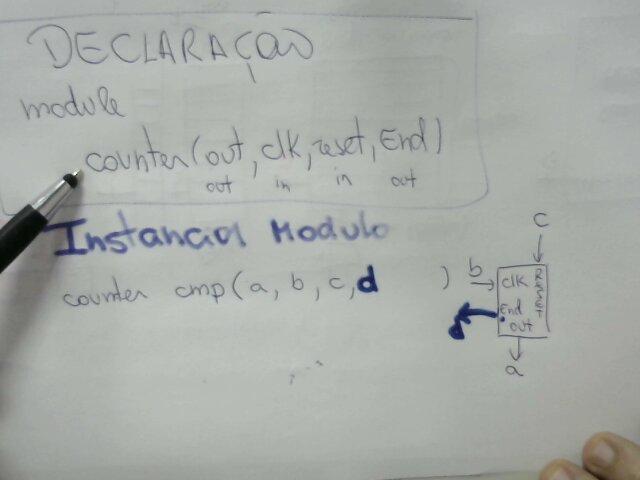 DECLARAÇÃO
module
counter(out, clk, reset, End)
out in in out
Instancia Modulo
counter cmp(a, b, c, d )
c
b
clk
RESET
End
out
a